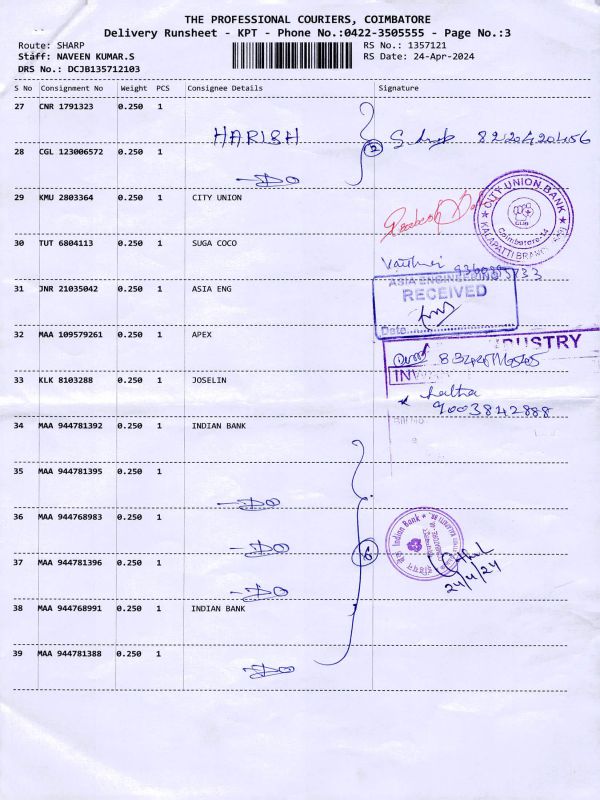 THE PROFESSIONAL COURIERS, COIMBATORE
Delivery Runsheet - KPT - Phone No.:0422-3505555 - Page No.:3
Route: SHARP RS No.: 1357121
Staff: NAVEEN KUMAR.S RS Date: 24-Apr-2024
DRS No.: DCJB135712103
S No Consignment No Weight PCS Consignee Details Signature
27 CNR 1791323 0.250 1
HARISH
28 CGL 123006572 0.250 1 2
DO
29 KMU 2803364 0.250 1 CITY UNION
CITY UNION BANK
CUB
Coimbatore-14
KALAPATTI BRANCH
30 TUT 6804113 0.250 1 SUGA COCO
31 JNR 21035042 0.250 1 ASIA ENG
ASIA ENGINEERING
RECEIVED
Date
32 MAA 109579261 0.250 1 APEX
DUSTRY
INW
33 KLK 8103288 0.250 1 JOSELIN
Latha
9003842888
34 MAA 944781392 0.250 1 INDIAN BANK
35 MAA 944781395 0.250 1
DO
36 MAA 944768983 0.250 1
DO
Indian Bank
37 MAA 944781396 0.250 1 6
DO
24/4/24
38 MAA 944768991 0.250 1 INDIAN BANK
39 MAA 944781388 0.250 1
DO